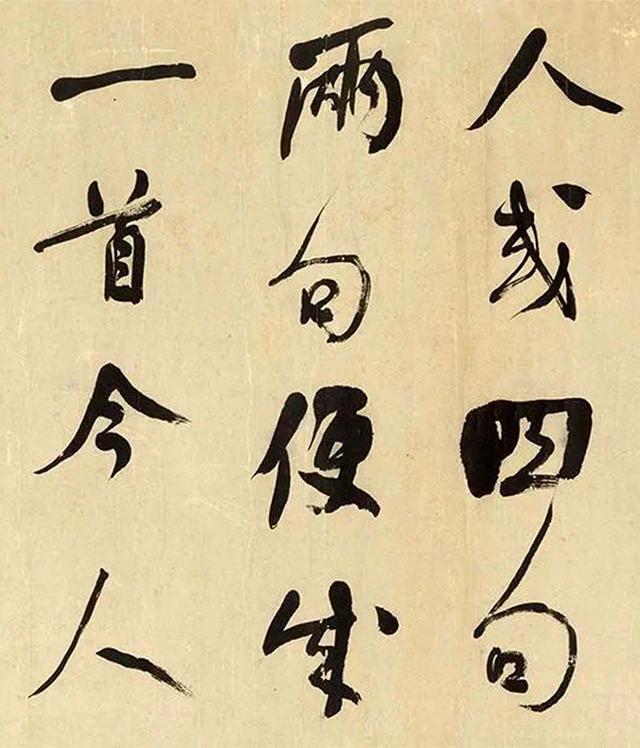 人或四句
兩句便成
一首今人